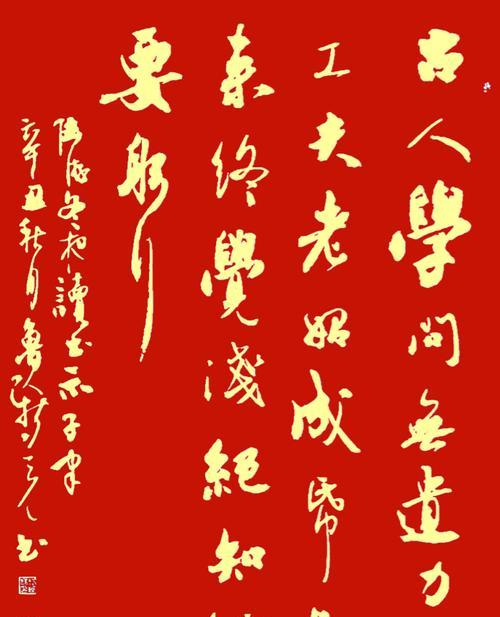 古人學問無遺力
工夫老始成帋
来終覺淺絕知
要躬行
陸游冬夜讀书示子聿
辛丑秋月魯书